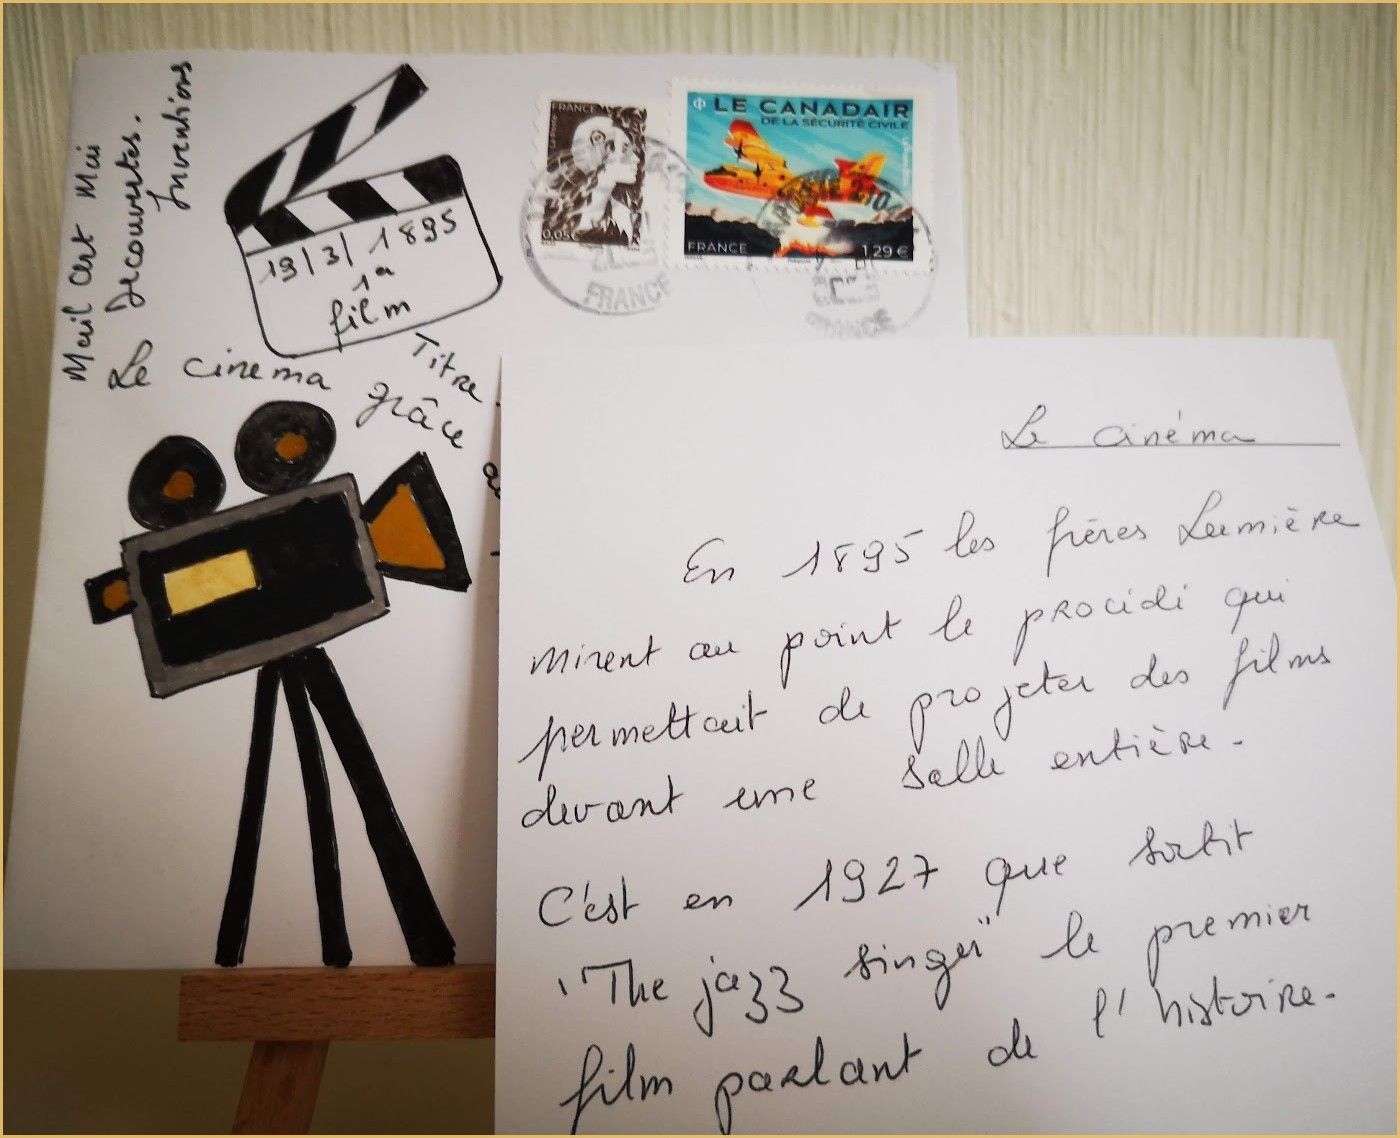 Mail art Mai
Decouvertes.
Inventions
19/3/1895
1a
film
Titre.
Le cinema grâce au
FRANCE
0,05€
LE CANADAIR
DE LA SÉCURITÉ CIVILE
FRANCE
1,29 €
FRANCE
FRANCE
Le cinéma
En 1895 les frères Lumière
mirent au point le procédé qui
permettait de projeter des films
devant une salle entière.
C'est en 1927 que sortit
"The jazz singer" le premier
film parlant de l'histoire.